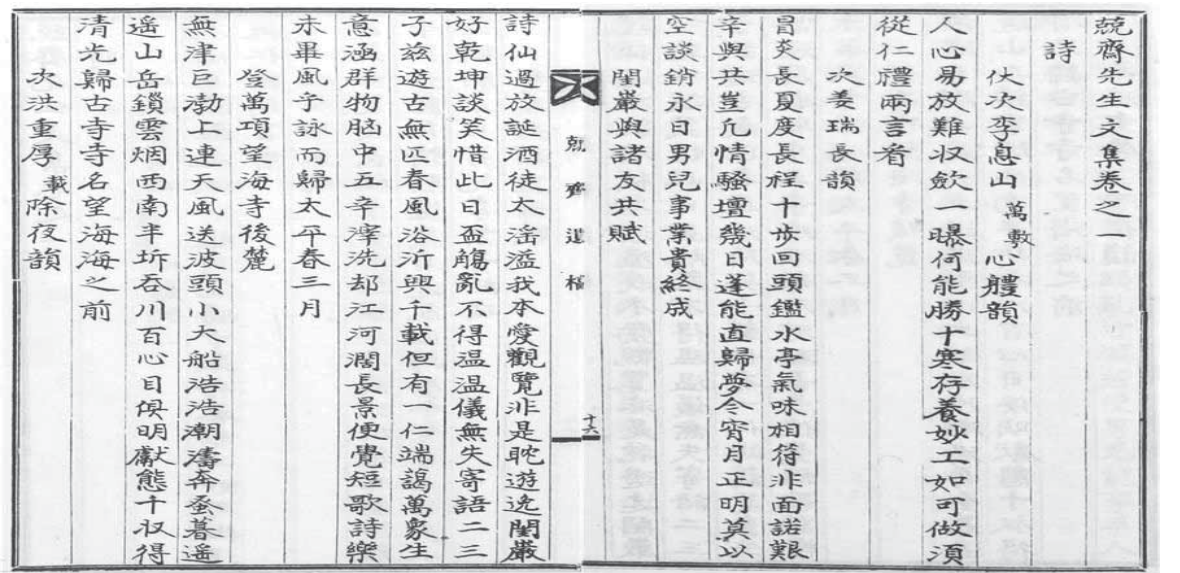 兢齋先生文集卷之一
詩
伏次李息山萬敷心軆韻
人心易放難収歛一曝何能勝十寒存養妙工如可做須
從仁禮兩言看
次姜瑞長韻
冒炎長夏度長程十步回頭鑑水亭氣味相符非面諾艱
辛與共豈凡情騷壇幾日蓬能直歸夢今宵月正明莫以
空談銷永日男兒事業貴終成
閨巖與諸友共賦
兢齋遺稿
十六
詩仙過放誕酒徒太滛溢我本愛觀覽非是耽遊逸閨巖
好乾坤談笑惜此日盃觴亂不得温温儀無失寄語二三
子兹遊古無匹春風浴沂興千載但有一仁端藹萬象生
意涵群物脑中五辛滓洗却江河濶長景便覺短歌詩樂
未畢風乎詠而歸太平春三月
登萬項望海寺後麓
無津巨渤上連天風送波頭小大船浩浩潮濤奔蚤暮遥
遥山岳鎖雲烟西南半坼吞川百心目俱明獻態千収得
清光歸古寺寺名望海海之前
次洪重厚載除夜韻